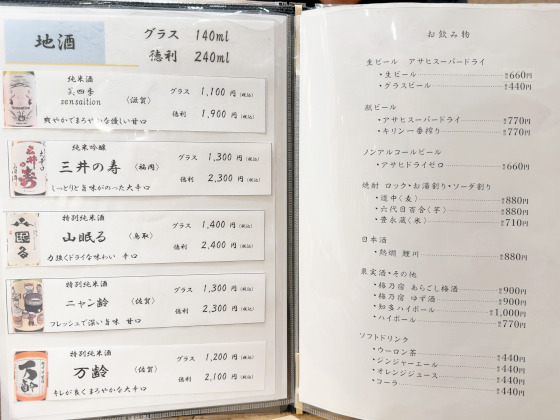 地酒
グラス 140ml
徳利 240ml
純米酒
笑四季
sensation 〈滋賀〉
グラス 1,100円(税込)
徳利 1,900円(税込)
爽やかでまろやかな優しい甘口
純米吟醸
三井の寿 〈福岡〉
グラス 1,300円(税込)
徳利 2,300円(税込)
しっとりと旨味がのった大辛口
特別純米酒
山眠る 〈鳥取〉
グラス 1,400円(税込)
徳利 2,400円(税込)
力強くドライな味わい 辛口
特別純米酒
ニャン齢 〈佐賀〉
グラス 1,300円(税込)
徳利 2,300円(税込)
フレッシュで深い旨味 甘口
特別純米酒
万齢 〈佐賀〉
グラス 1,200円(税込)
徳利 2,100円(税込)
キレが良くまろやかな大辛口
お飲み物
生ビール アサヒスーパードライ
・生ビール 660円
・グラスビール 440円
瓶ビール
・アサヒスーパードライ 770円
・キリン一番搾り 770円
ノンアルコールビール
・アサヒドライゼロ 660円
焼酎 ロック・お湯割り・ソーダ割り
・道中〈麦〉 880円
・六代目百合〈芋〉 880円
・豊永蔵〈米〉 710円
日本酒
・熱燗 鯉川 880円
果実酒・その他
・梅乃宿 あらごし梅酒 900円
・梅乃宿 ゆず酒 900円
・知多ハイボール 1,000円
・ハイボール 770円
ソフトドリンク
・ウーロン茶 440円
・ジンジャーエール 440円
・オレンジジュース 440円
・コーラ 440円